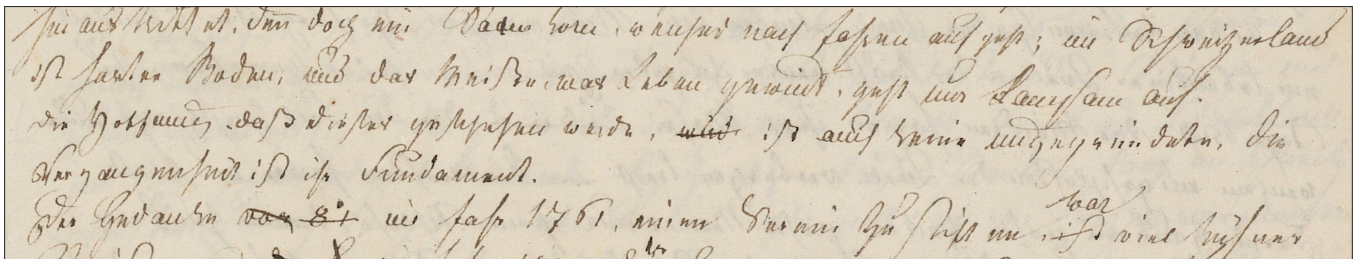 hinaus stattet, denn doch ein Saamkorn, wenn's nach Jahren aufgeht; im Schweizerland
ist harter Boden, und das Meiste, was Leben gewinnt, geht nur Langsam auf.
die Hoffnung, daß dieses geschehen werde, ist auch keine ungegründete, die
Vergangenheit ist ihr Fundament.
Der Gedanke vor 81 im Jahr 1761, einen Verein zu stiften war viel kühner